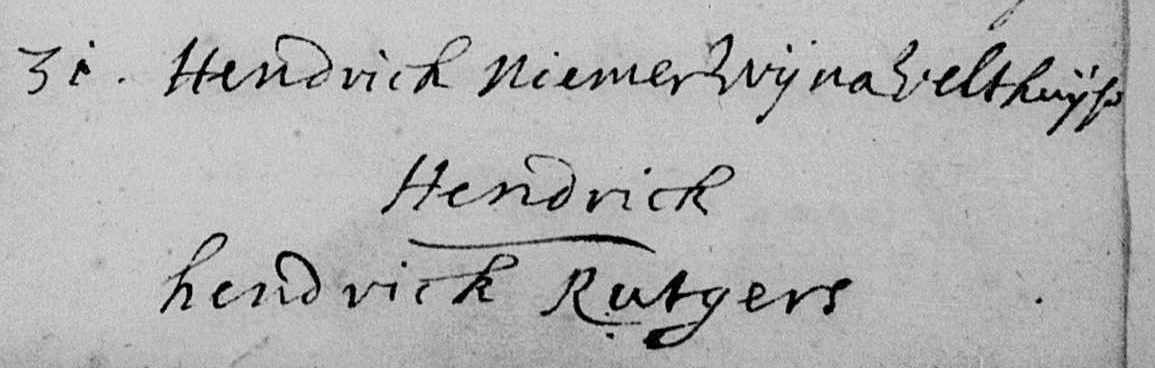 31. Hendrick Niemer Wijna Velthuijs
Hendrick
hendrick Rutgers